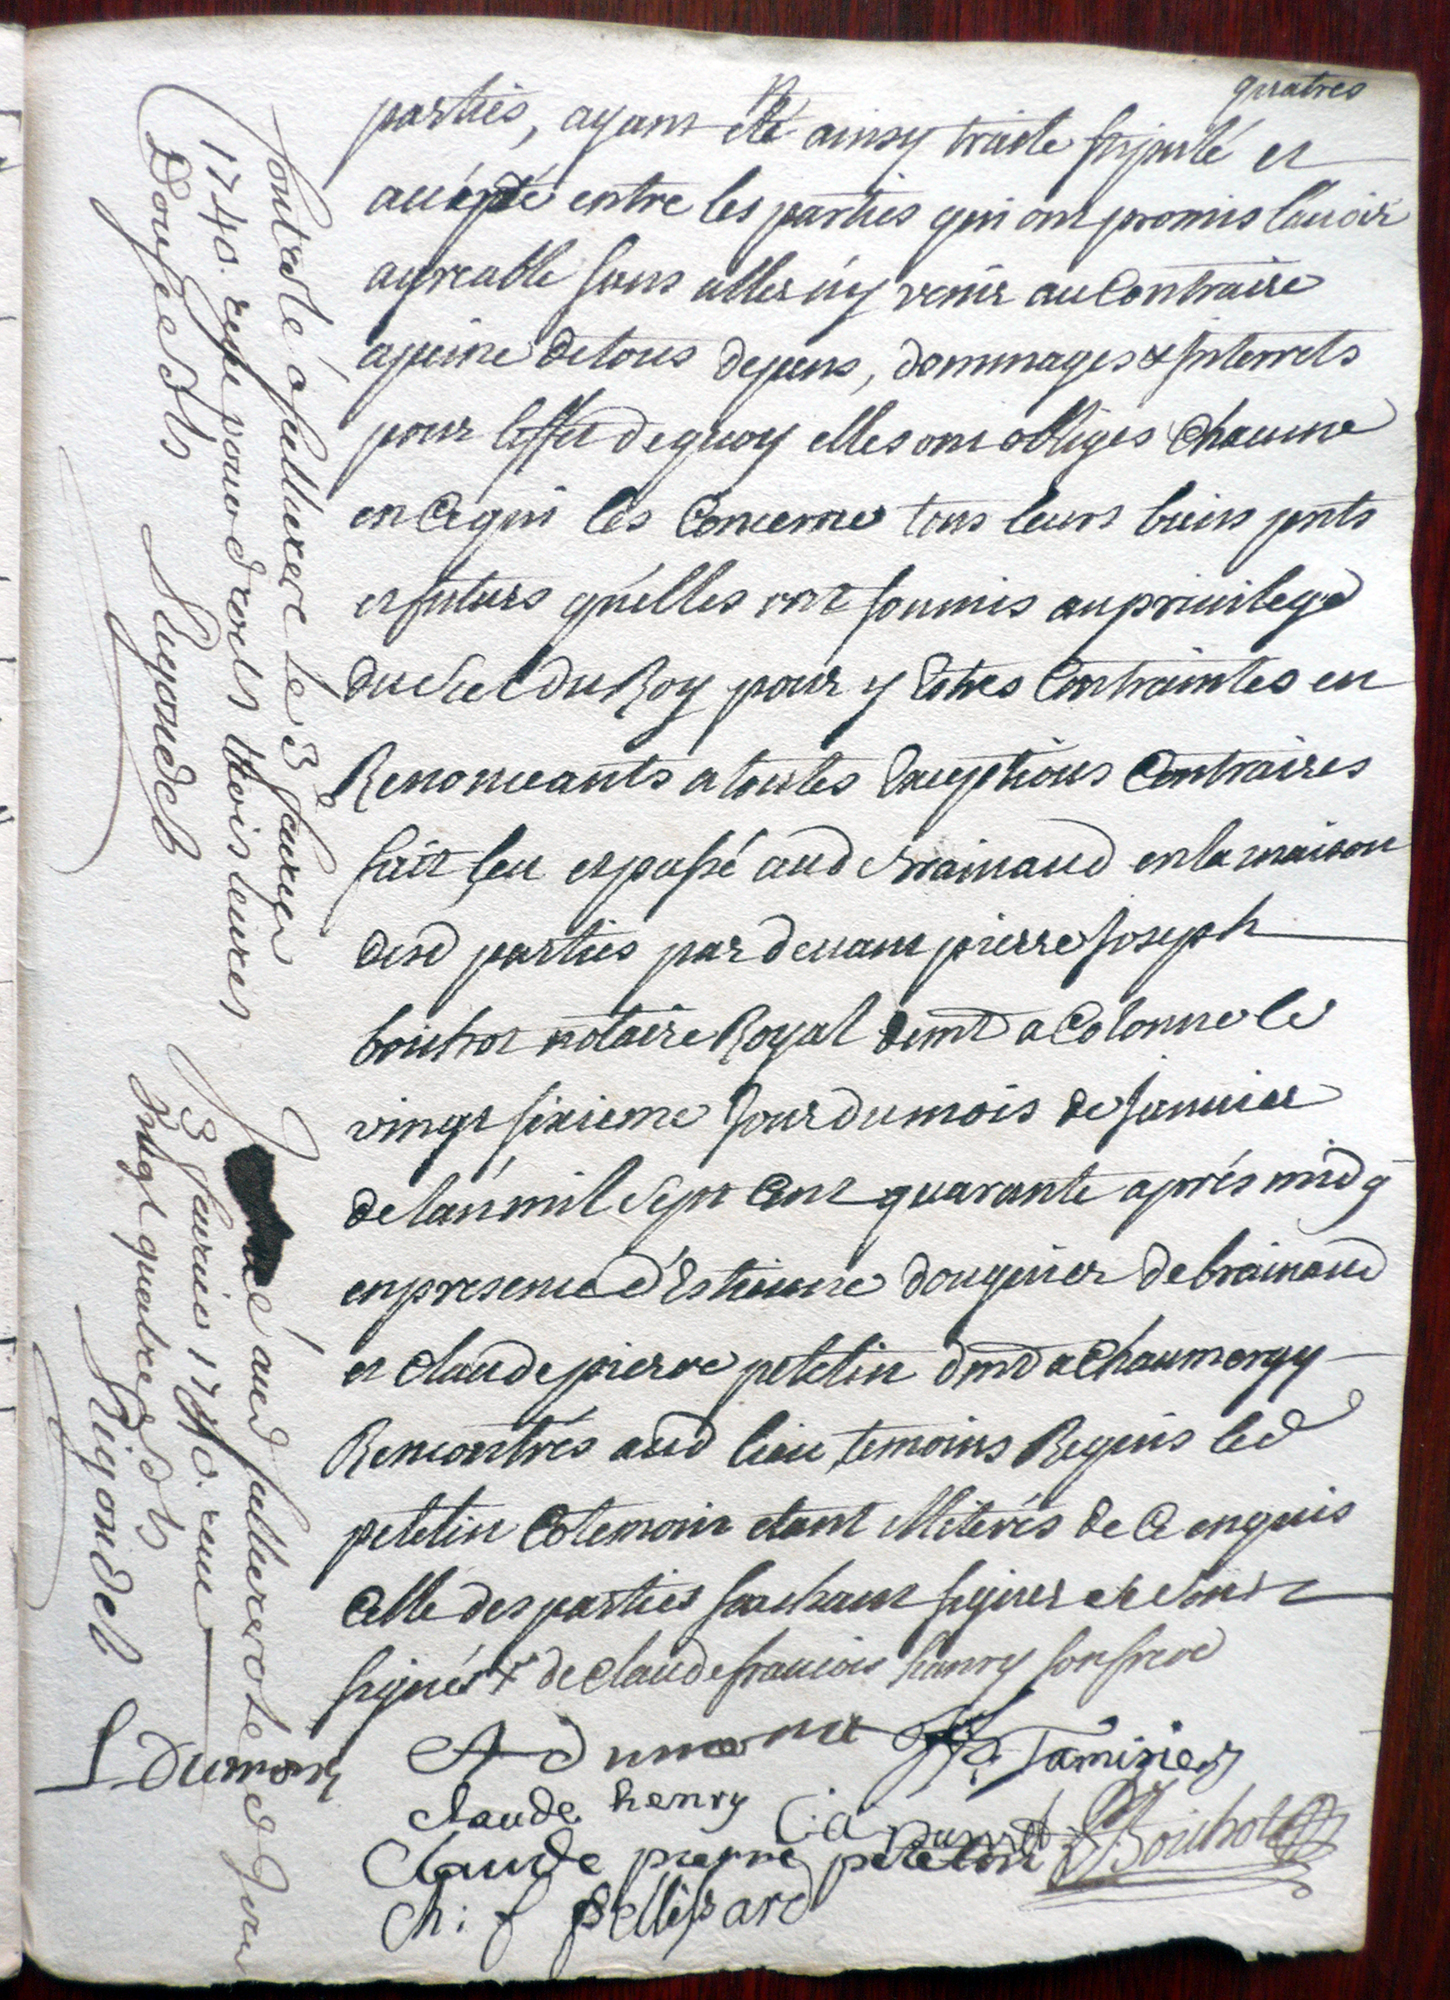 quatres
parties, ayant été ainsy traité stipulé et
accepté entre les parties qui ont promis lauoir
agreable sans aller n'y venir au Contraire
apeine de tous depens, dommages & Interrets
pour leffet de quoy elles ont obligés chacune
en ce qui les Concerne tous leurs biens pnts
et futurs qu'elles ont soumis au priuilege
du scel du Roy pour y Estres Contraintes en
Renonceants a touttes Exceptions Contraires
fait leu et passé aud brainaud en la maison
desd parties par deuant pierre Joseph
bouchot notaire Royal demt a Colonne le
vingt sixieme Jour du mois de Januier
de lan mil sept Cent quarante aprés midy
en presence d'Estienne douginer de brainaud
et claude pierre petetin dmt a Chaumergy
Rencontrés aud lieu temoins Requis led
petetin Cotemoin etant illiterés de ce enquis
celle des parties sachant signer et se sont
signés + de claude francois henry son frere
A dumont Tamisier
claude henry
Claude pierre petetin Bouchot
ch: f pellissard
L Dumont
Contrerolé a Sellierere le 3e feurier
1740. reçu pour droits trois liures
Douze sols Rigondel
Insinué aud Sellierere led Jour
3 feurier 1740. reçu
vingt quatre sols
Rigondel